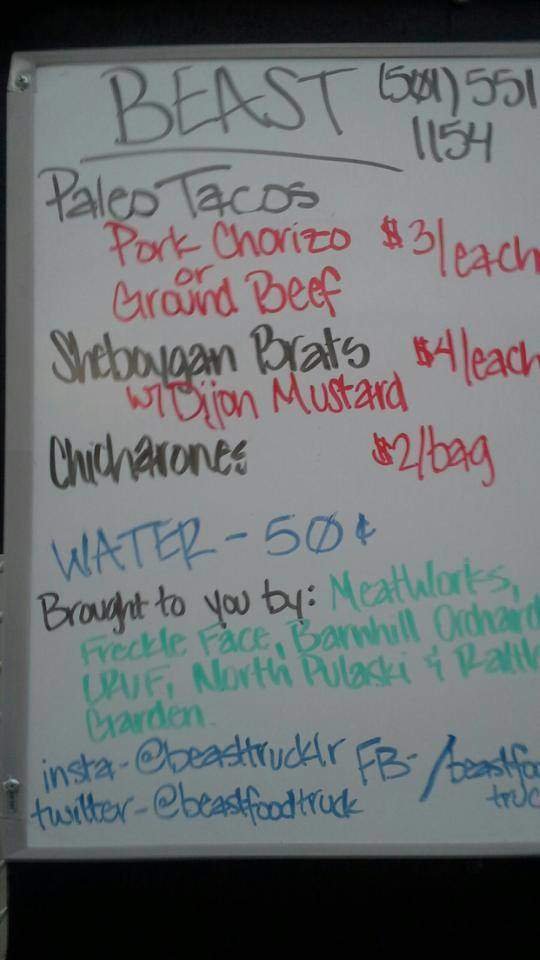 BEAST (501) 551
1154
Paleo Tacos
Pork Chorizo $3/each
or
Ground Beef
Sheboygan Brats $4/each
w/ Dijon Mustard
Chicharones $2/bag
WATER - 50¢
Brought to you by: MeatWorks,
Freckle Face, Barnhill Orchard
North Pulaski &
Garden.
insta-@beasttrucklr FB-/beastfo
twitter-@beastfoodtruck truc